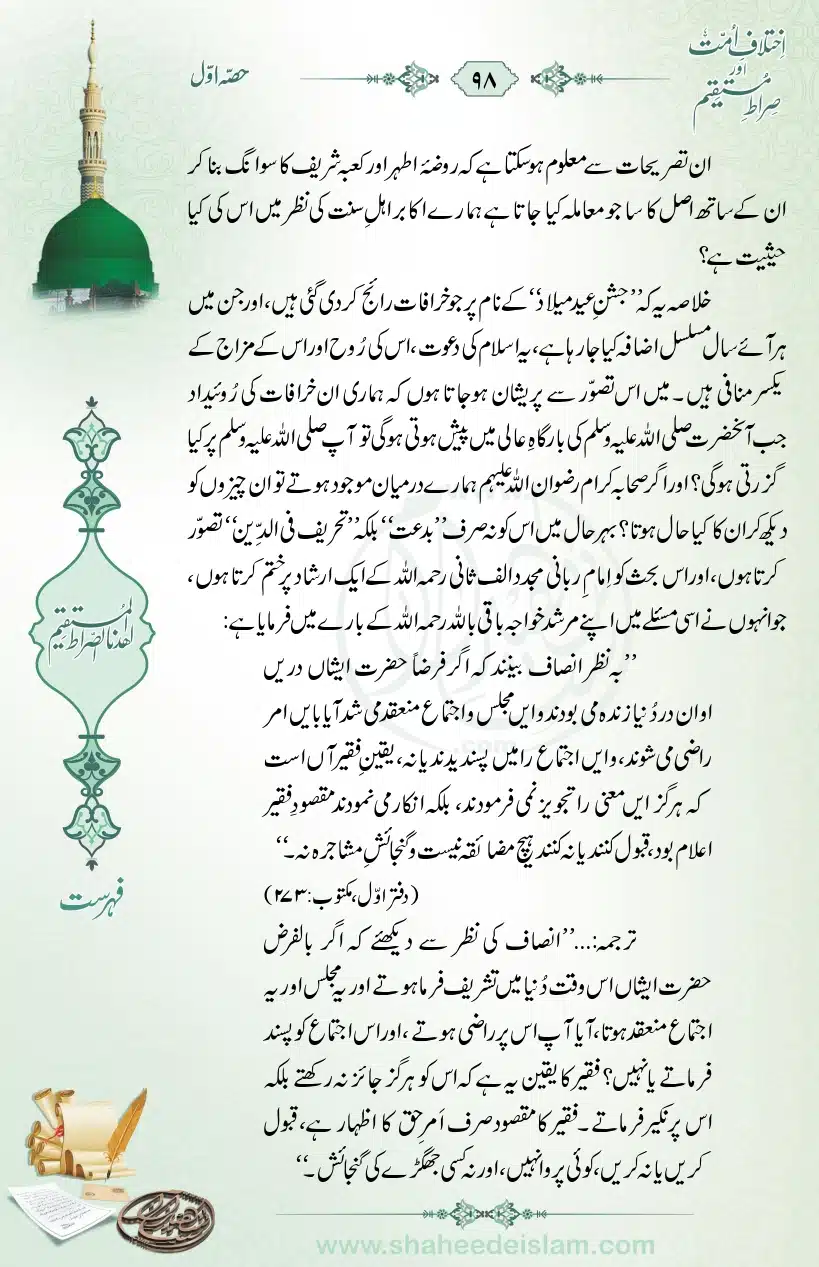 اِختلافِ اُمّت
اور
صِراطِ مُستقیم
۹۸
حصّہ اوّل
ان تصریحات سے معلوم ہوسکتا ہے کہ روضۂ اطہر اور کعبہ شریف کا سوانگ بنا کر
ان کے ساتھ اصل کا سا جو معاملہ کیا جاتا ہے ہمارے اکابر اہلِ سنت کی نظر میں اس کی کیا
حیثیت ہے؟
خلاصہ یہ کہ ’’جشنِ عید میلاد‘‘ کے نام پر جو خرافات رائج کردی گئی ہیں، اور جن میں
ہر آئے سال مسلسل اضافہ کیا جارہا ہے، یہ اسلام کی دعوت، اس کی رُوح اور اس کے مزاج کے
یکسر منافی ہیں۔ میں اس تصوّر سے پریشان ہوجاتا ہوں کہ ہماری ان خرافات کی رُوئیداد
جب آنحضرت صلی اللہ علیہ وسلم کی بارگاہِ عالی میں پیش ہوتی ہوگی تو آپ صلی اللہ علیہ وسلم پر کیا
گزرتی ہوگی؟ اور اگر صحابہ کرام رضوان اللہ علیہم ہمارے درمیان موجود ہوتے تو ان چیزوں کو
دیکھ کر ان کا کیا حال ہوتا؟ بہرحال میں اس کو نہ صرف ’’بدعت‘‘ بلکہ ’’تحریف فی الدِّین‘‘ تصوّر
کرتا ہوں، اور اس بحث کو اِمامِ ربانی مجدد الف ثانی رحمہ اللہ کے ایک ارشاد پر ختم کرتا ہوں،
جو انہوں نے اسی مسئلے میں اپنے مرشد خواجہ باقی باللہ رحمہ اللہ کے بارے میں فرمایا ہے:
’’بہ نظر انصاف بینند کہ اگر فرضاً حضرت ایشاں دریں
اوان در دُنیا زندہ می بودند وایں مجلس واجتماع منعقد می شد آیا بایں امر
راضی می شوند، وایں اجتماع را میں پسندیدند یا نہ، یقینِ فقیر آں است
کہ ہرگز ایں معنی را تجویز نمی فرمودند، بلکہ انکار می نمودند مقصودِ فقیر
اعلام بود، قبول کنند یا نہ کنند ہیچ مضائقہ نیست وگنجائشِ مشاجرہ نہ۔‘‘
(دفتر اوّل، مکتوب: ۲۷۳)
ترجمہ:...’’انصاف کی نظر سے دیکھئے کہ اگر بالفرض
حضرت ایشاں اس وقت دُنیا میں تشریف فرما ہوتے اور یہ مجلس اور یہ
اجتماع منعقد ہوتا، آیا آپ اس پر راضی ہوتے، اور اس اجتماع کو پسند
فرماتے یا نہیں؟ فقیر کا یقین یہ ہے کہ اس کو ہرگز جائز نہ رکھتے بلکہ
اس پر نکیر فرماتے۔ فقیر کا مقصود صرف اَمرِ حق کا اظہار ہے، قبول
کریں یا نہ کریں، کوئی پروا نہیں، اور نہ کسی جھگڑے کی گنجائش۔‘‘
اهدنا الصراط المستقیم
فہرست
www.shaheedeislam.com